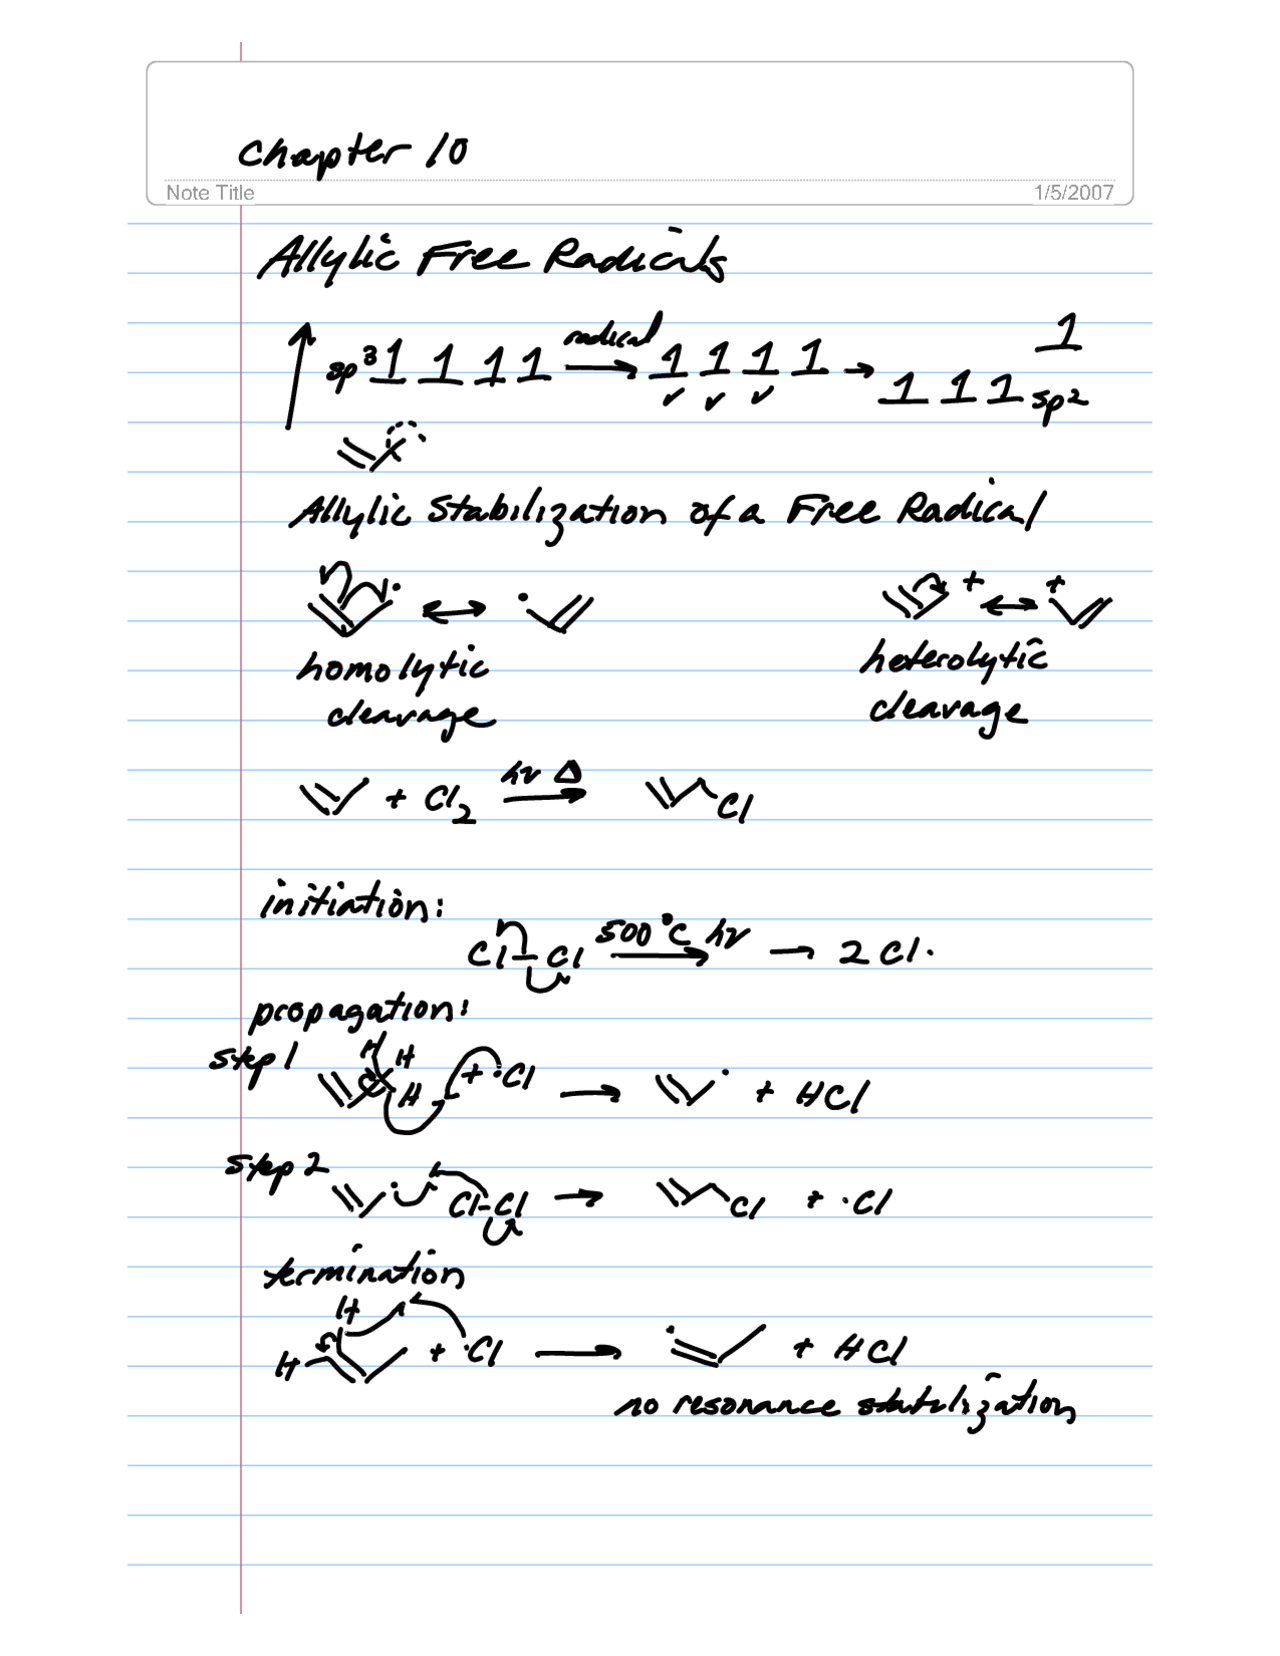 Chapter 10
Note Title 1/5/2007
Allylic Free Radicals
sp³ 1 1 1 1 radical → 1 1 1 1 → 1 1 1 sp² 1
Allylic Stabilization of a Free Radical
· ↔ · + ↔ +
homolytic heterolytic
cleavage cleavage
+ Cl₂ hν Δ → Cl
initiation:
Cl–Cl 500°C hν → → 2 Cl·
propagation:
step 1 H C H H + ·Cl → · + HCl
step 2 · Cl–Cl → Cl + ·Cl
termination
H H + ·Cl → · + HCl
no resonance stabilization